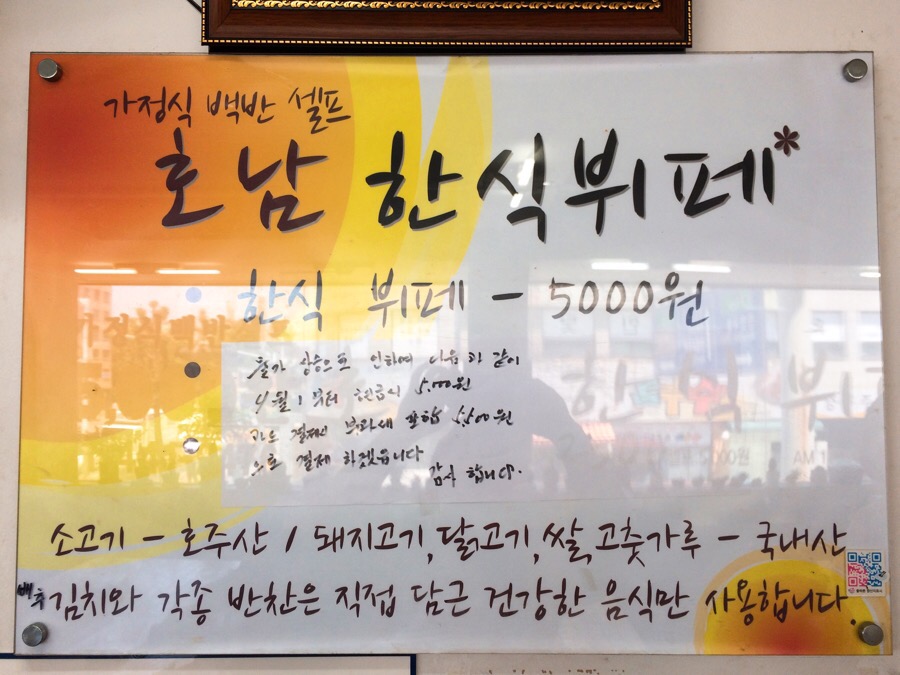 가정식 백반 셀프
호남 한식뷔페
한식 뷔페 - 5000원
물가 상승으로 인하여 다음과 같이
4월 1부터 현금시 5,000원
카드 결제시 부과세 포함 5,500원
으로 결제 하겠습니다
감사 합니다.
소고기 - 호주산 / 돼지고기, 닭고기, 쌀, 고춧가루 - 국내산
배추 김치와 각종 반찬은 직접 담근 건강한 음식만 사용합니다.